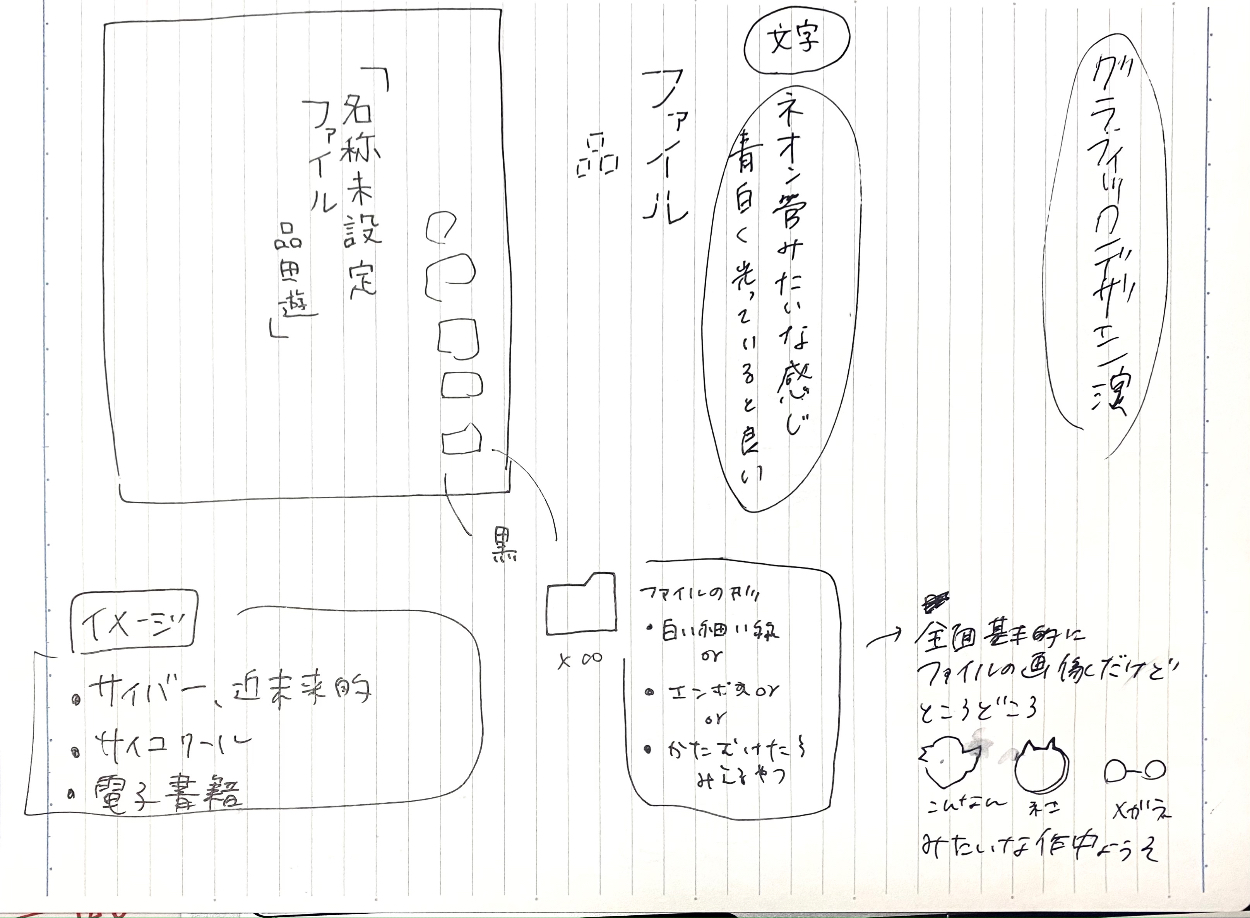 グラフィックデザイン演
文字
ネオン管みたいな感じ
青白く光っていると良い
ファイル
品
「名称未設定
ファイル
品田遊」
黒
イメージ
・サイバー、近未来的
・サイコクール
・電子書籍
×∞
ファイルの列
・白い細い線
or
・エンボスor
or
・かたむけたら
みえるやつ
→全面基本的に
ファイルの画像だけど
ところどころ
こんなん
ネコ
メガネ
みたいな作中ようそ